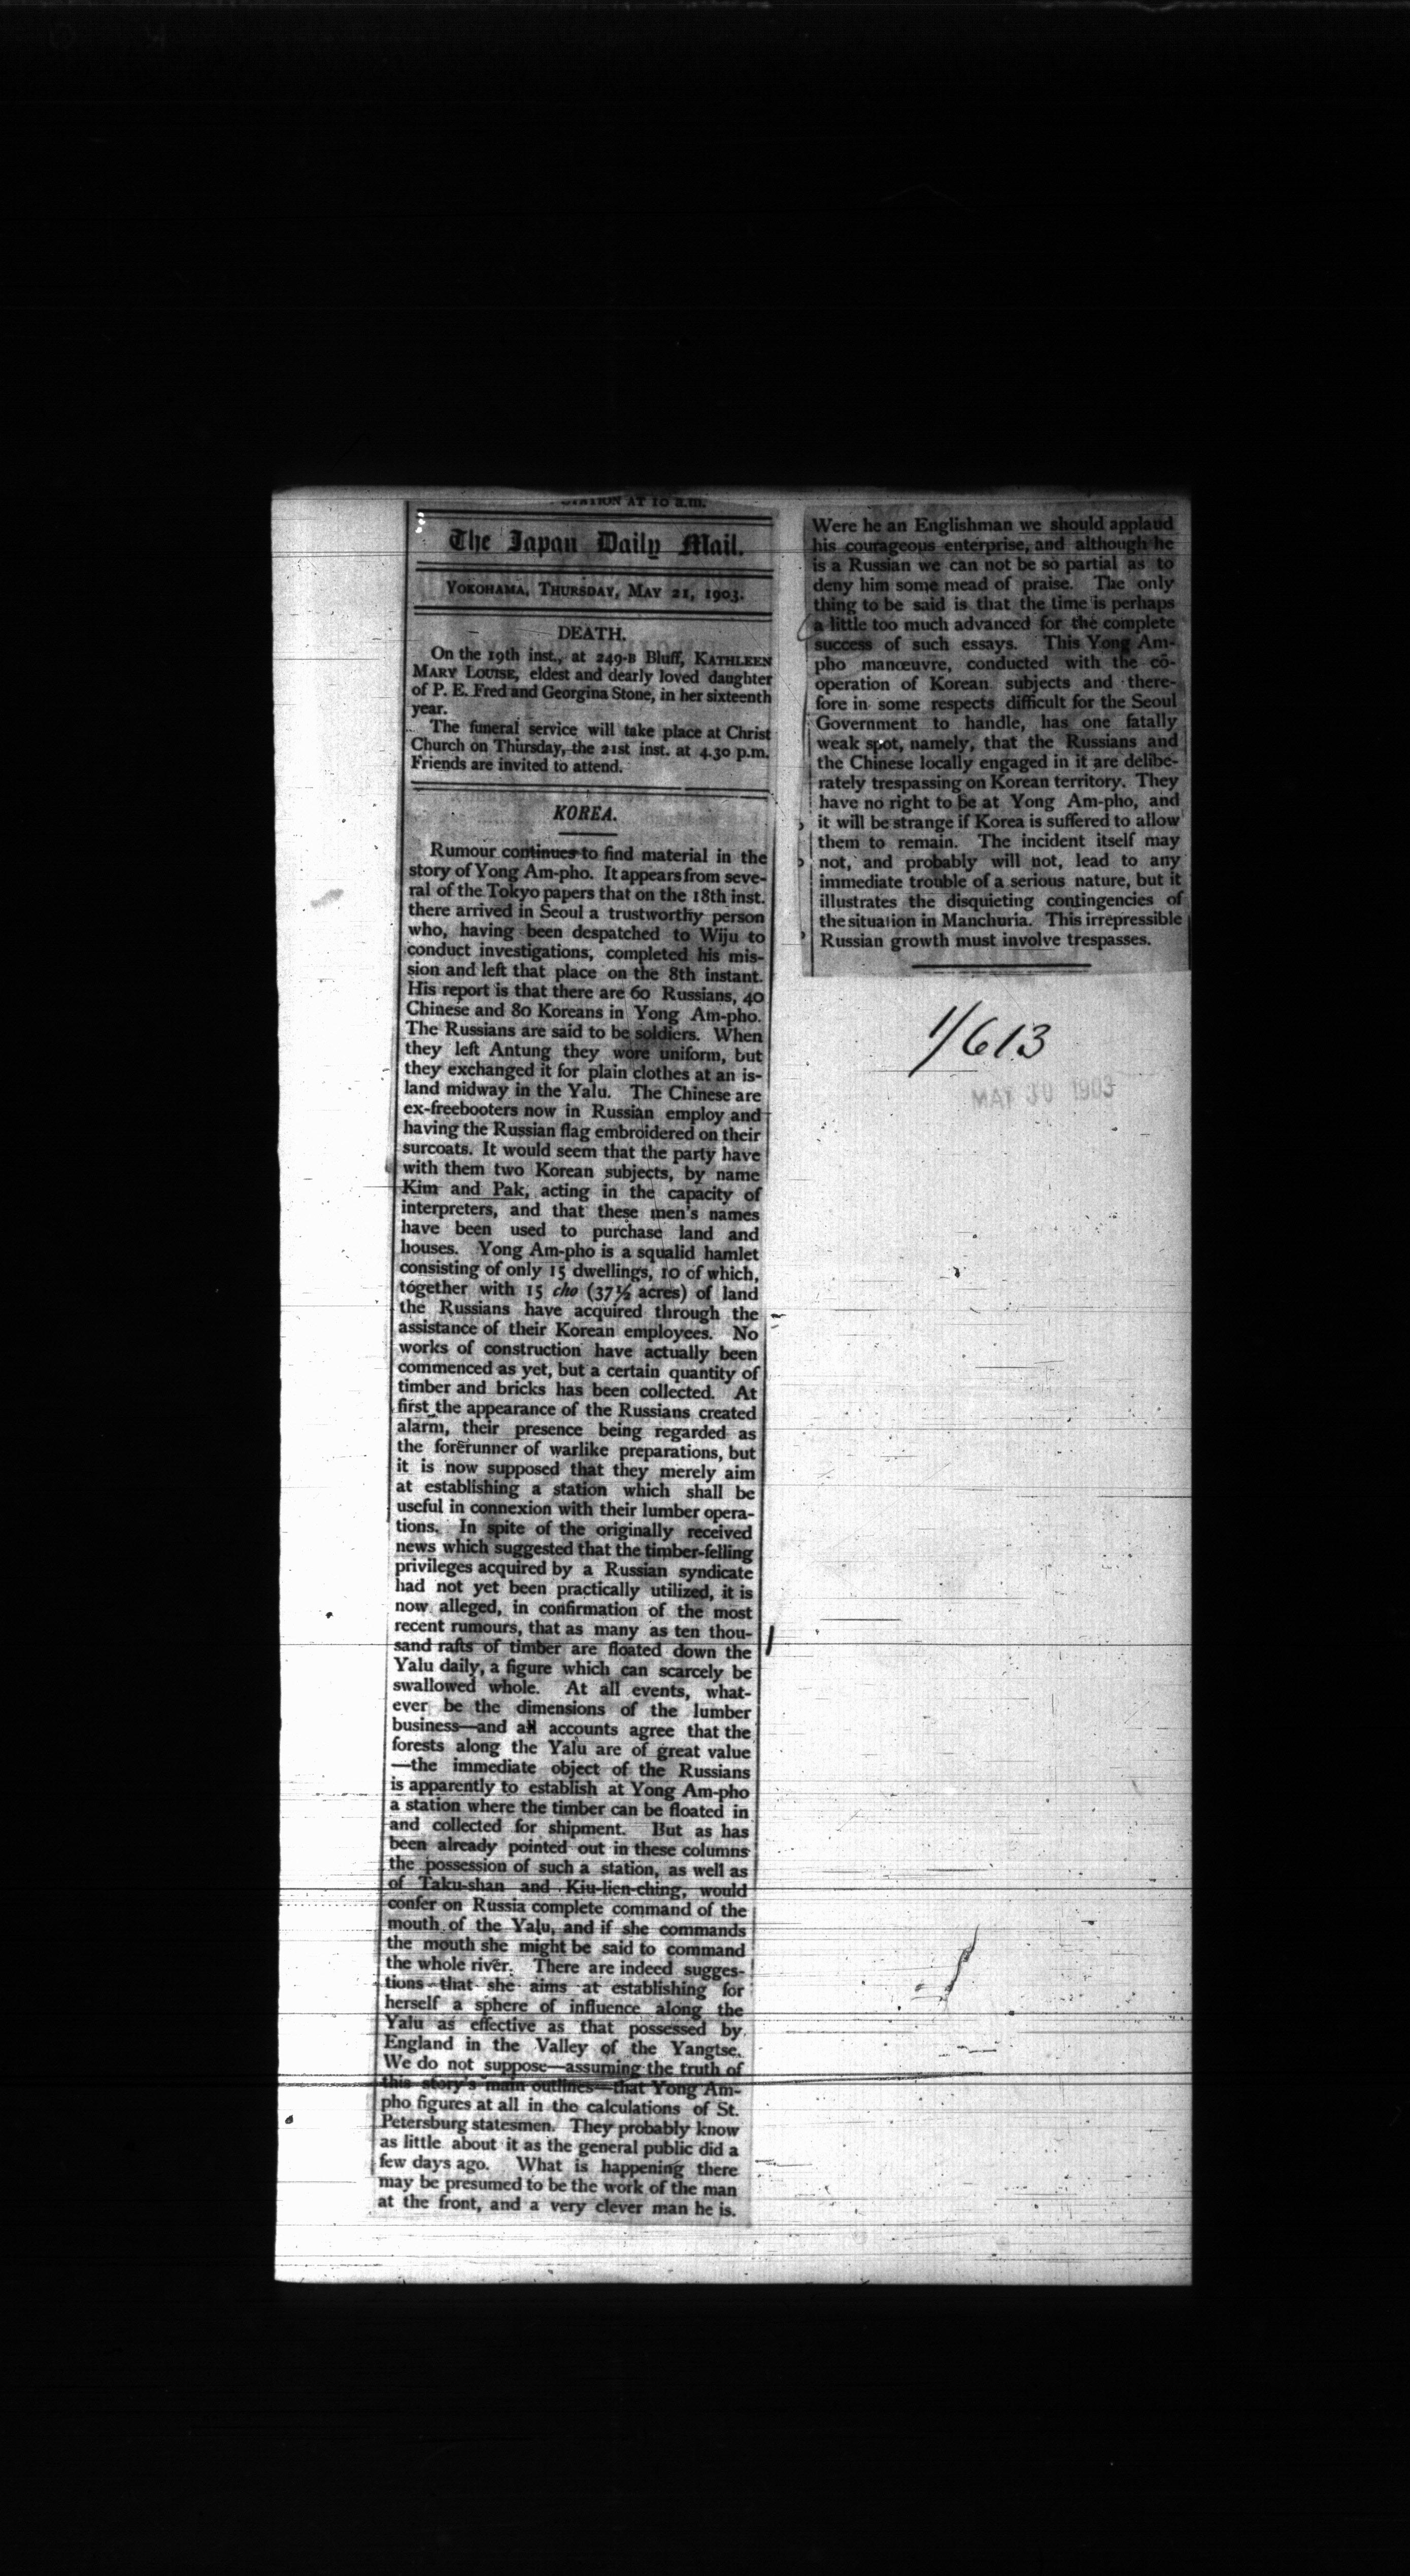 STATION AT 10 a.m.
The Japan Daily Mail.
YOKOHAMA, THURSDAY, MAY 21, 1903.
DEATH.
On the 19th inst., at 249-B Bluff, KATHLEEN
MARY LOUISE, eldest and dearly loved daughter
of P. E. Fred and Georgina Stone, in her sixteenth
year.
The funeral service will take place at Christ
Church on Thursday, the 21st inst. at 4.30 p.m.
Friends are invited to attend.
KOREA.
Rumour continues to find material in the
story of Yong Am-pho. It appears from seve-
ral of the Tokyo papers that on the 18th inst.
there arrived in Seoul a trustworthy person
who, having been despatched to Wiju to
conduct investigations, completed his mis-
sion and left that place on the 8th instant.
His report is that there are 60 Russians, 40
Chinese and 80 Koreans in Yong Am-pho.
The Russians are said to be soldiers. When
they left Antung they wore uniform, but
they exchanged it for plain clothes at an is-
land midway in the Yalu. The Chinese are
ex-freebooters now in Russian employ and
having the Russian flag embroidered on their
surcoats. It would seem that the party have
with them two Korean subjects, by name
Kim and Pak, acting in the capacity of
interpreters, and that these men's names
have been used to purchase land and
houses. Yong Am-pho is a squalid hamlet
consisting of only 15 dwellings, 10 of which,
together with 15 cho (37½ acres) of land
the Russians have acquired through the
assistance of their Korean employees. No
works of construction have actually been
commenced as yet, but a certain quantity of
timber and bricks has been collected. At
first the appearance of the Russians created
alarm, their presence being regarded as
the forerunner of warlike preparations, but
it is now supposed that they merely aim
at establishing a station which shall be
useful in connexion with their lumber opera-
tions. In spite of the originally received
news which suggested that the timber-felling
privileges acquired by a Russian syndicate
had not yet been practically utilized, it is
now alleged, in confirmation of the most
recent rumours, that as many as ten thou-
sand rafts of timber are floated down the
Yalu daily, a figure which can scarcely be
swallowed whole. At all events, what-
ever be the dimensions of the lumber
business—and all accounts agree that the
forests along the Yalu are of great value
—the immediate object of the Russians
is apparently to establish at Yong Am-pho
a station where the timber can be floated in
and collected for shipment. But as has
been already pointed out in these columns
the possession of such a station, as well as
of Taku-shan and Kiu-lien-ching, would
confer on Russia complete command of the
mouth of the Yalu, and if she commands
the mouth she might be said to command
the whole river. There are indeed sugges-
tions that she aims at establishing for
herself a sphere of influence along the
Yalu as effective as that possessed by
England in the Valley of the Yangtse.
We do not suppose—assuming the truth of
this story's main outlines—that Yong Am-
pho figures at all in the calculations of St.
Petersburg statesmen. They probably know
as little about it as the general public did a
few days ago. What is happening there
may be presumed to be the work of the man
at the front, and a very clever man he is.
Were he an Englishman we should applaud
his courageous enterprise, and although he
is a Russian we can not be so partial as to
deny him some mead of praise. The only
thing to be said is that the time is perhaps
a little too much advanced for the complete
success of such essays. This Yong Am-
pho manœuvre, conducted with the co-
operation of Korean subjects and there-
fore in some respects difficult for the Seoul
Government to handle, has one fatally
weak spot, namely, that the Russians and
the Chinese locally engaged in it are delibe-
rately trespassing on Korean territory. They
have no right to be at Yong Am-pho, and
it will be strange if Korea is suffered to allow
them to remain. The incident itself may
not, and probably will not, lead to any
immediate trouble of a serious nature, but it
illustrates the disquieting contingencies of
the situation in Manchuria. This irrepressible
Russian growth must involve trespasses.
1/613
MAY 30 1903